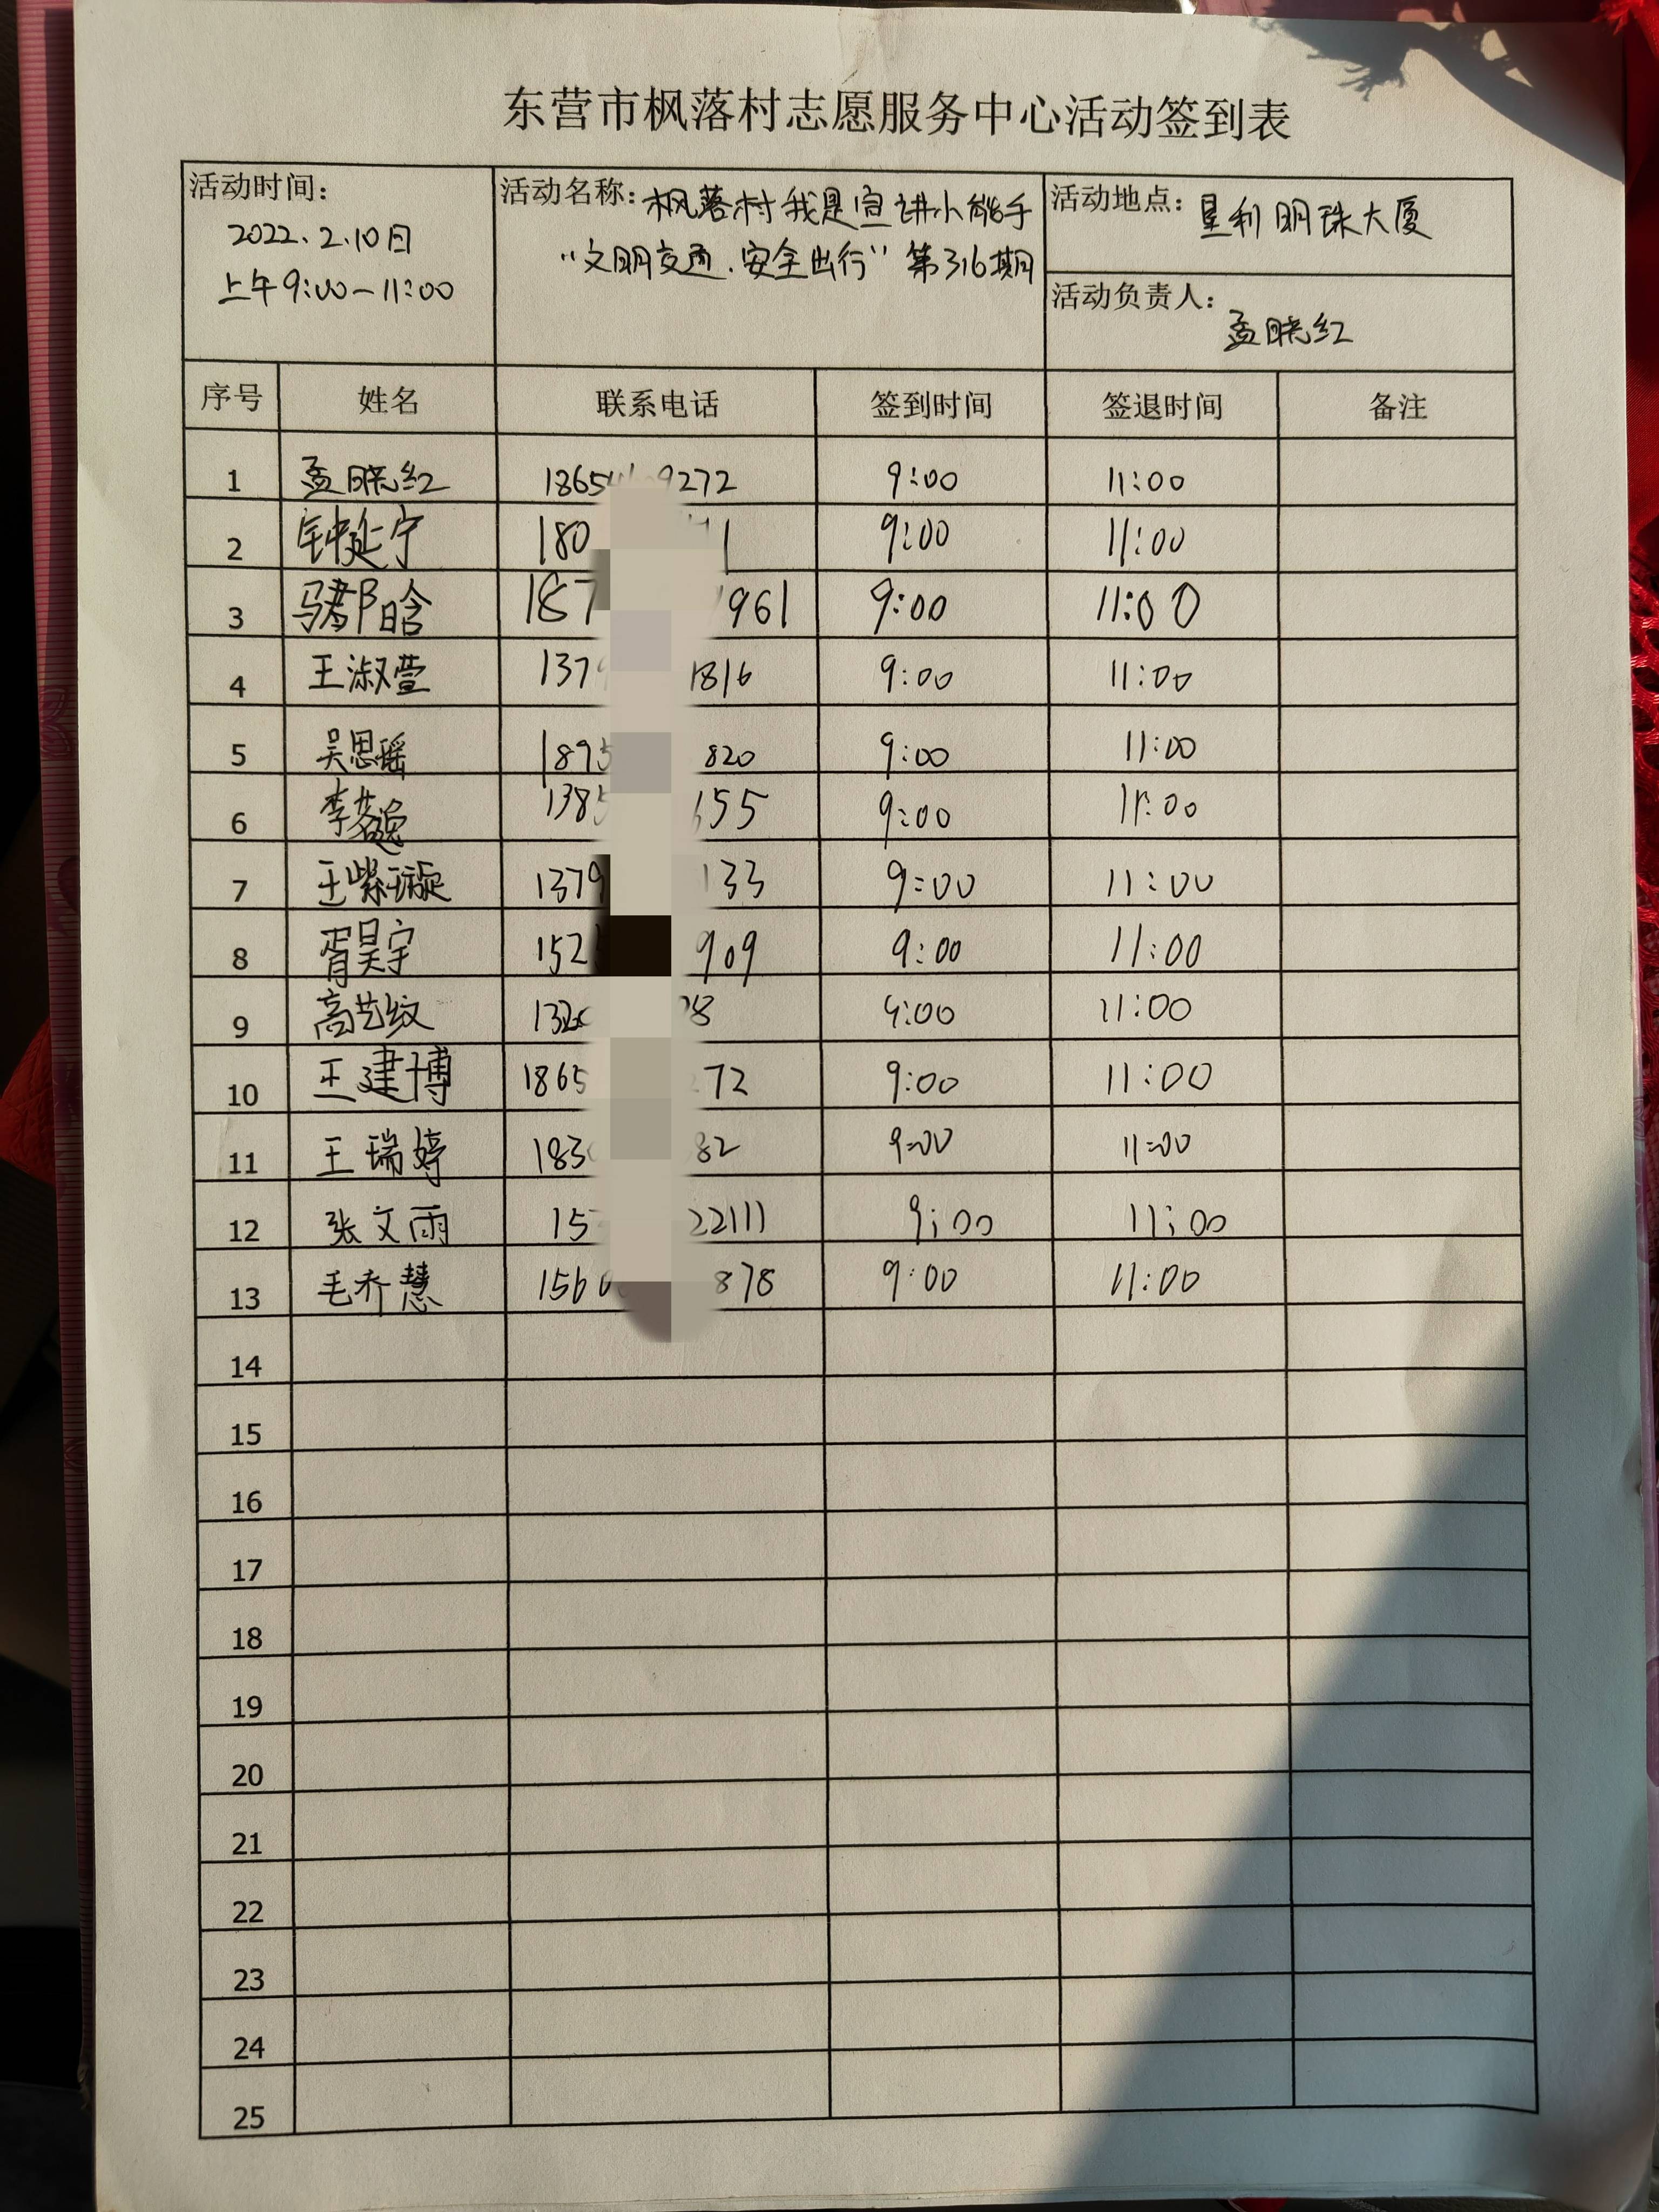 东营市枫落村志愿服务中心活动签到表
活动时间：
2022.2.10日
上午9:00—11:00
活动名称：枫落村我是宣讲小能手
“文明交通.安全出行”第316期
活动地点：垦利明珠大厦
活动负责人：
孟晓红
序号 姓名 联系电话 签到时间 签退时间 备注
1 孟晓红 1865 9272 9:00 11:00
2 钟延宁 180 1 9:00 11:00
3 马郡晗 187 961 9:00 11:00
4 王淑萱 137 1816 9:00 11:00
5 吴思瑶 1895 820 9:00 11:00
6 李 1385 155 9:00 11:00
7 王紫璇 1379 133 9:00 11:00
8 胥昊宇 152 909 9:00 11:00
9 高艺纹 132 8 9:00 11:00
10 王建博 1865 72 9:00 11:00
11 王瑞婷 183 82 9:00 11:00
12 张文雨 15 22111 9:00 11:00
13 毛乔慧 156 878 9:00 11:00
14
15
16
17
18
19
20
21
22
23
24
25